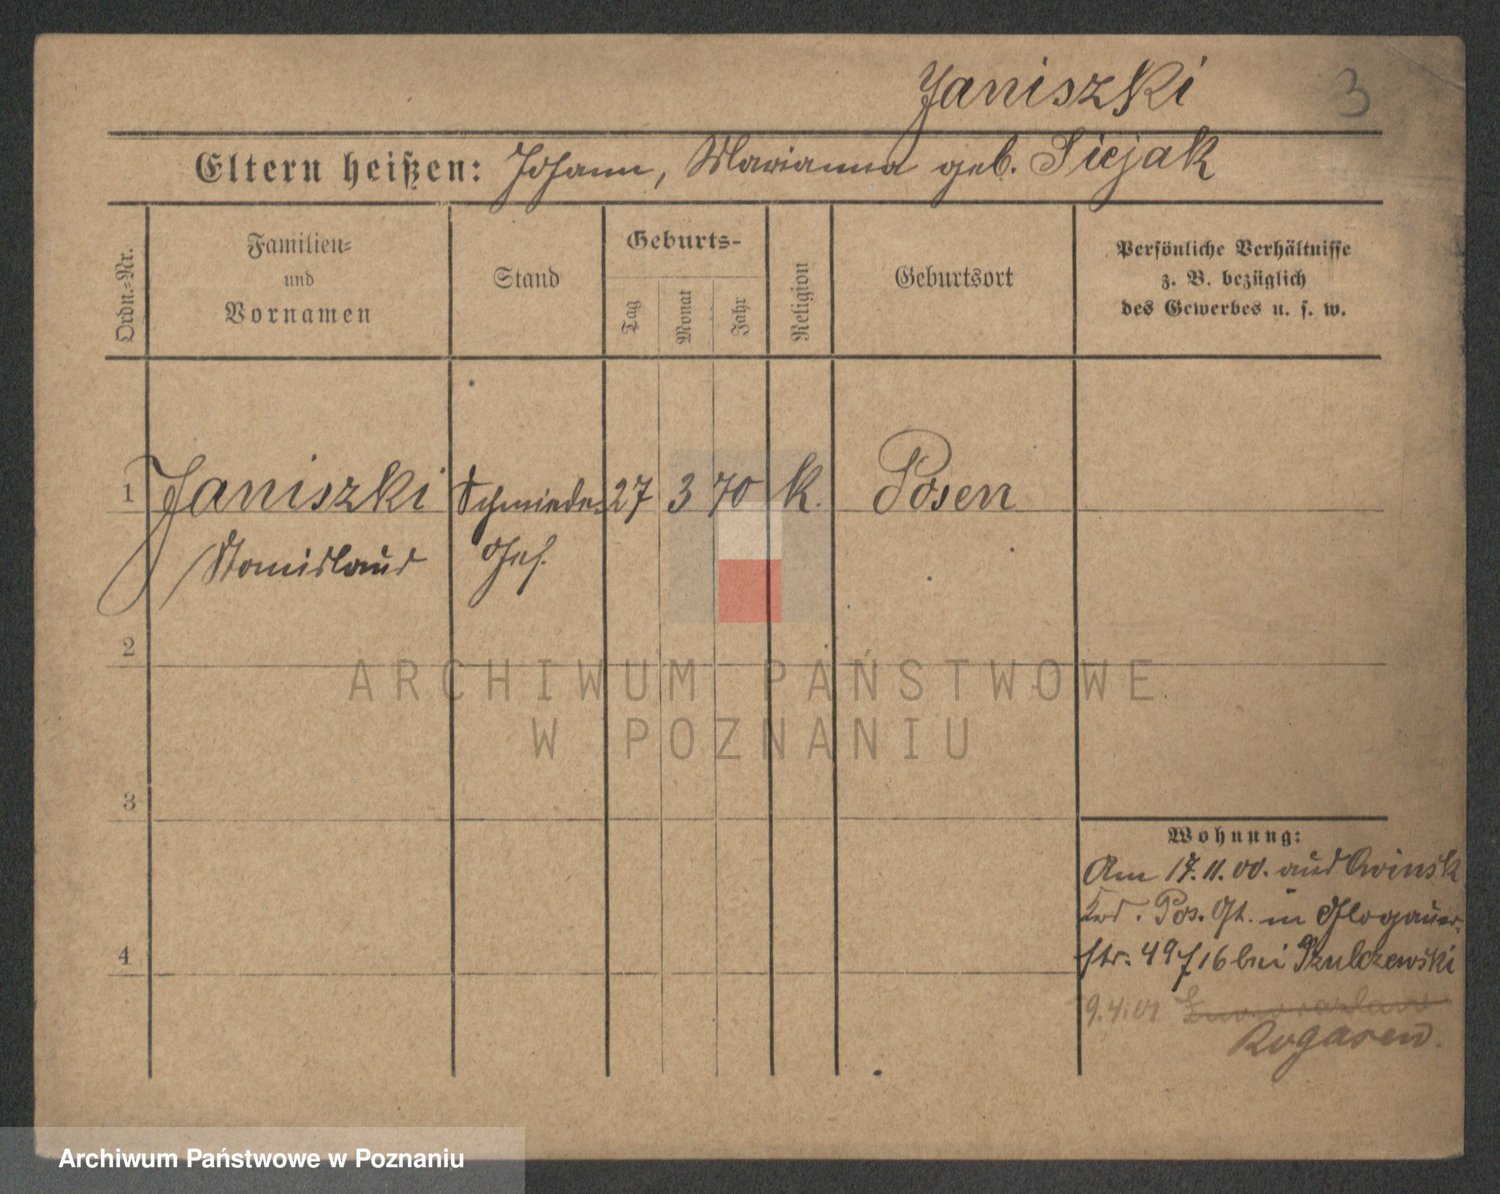 Janiszki
3
Eltern heißen: Johann, Marianna geb. Siejak
Ordn.-Nr.
Familien-
und
Vornamen
Stand
Geburts-
Tag
Monat
Jahr
Religion
Geburtsort
Persönliche Verhältnisse
z. B. bezüglich
des Gewerbes u. s. w.
1 Janiszki Schmiede- 27 3 70 K. Posen
Stanislaus Ges.
2
ARCHIWUM PAŃSTWOWE
W POZNANIU
3
4
Wohnung:
Am 17.11.00. aus Owinsk
Krs. Pos. Ost. in Glogauer-
str. 49 f 16 bei Szulczewski
9.4.01
Rogasen.
Archiwum Państwowe w Poznaniu